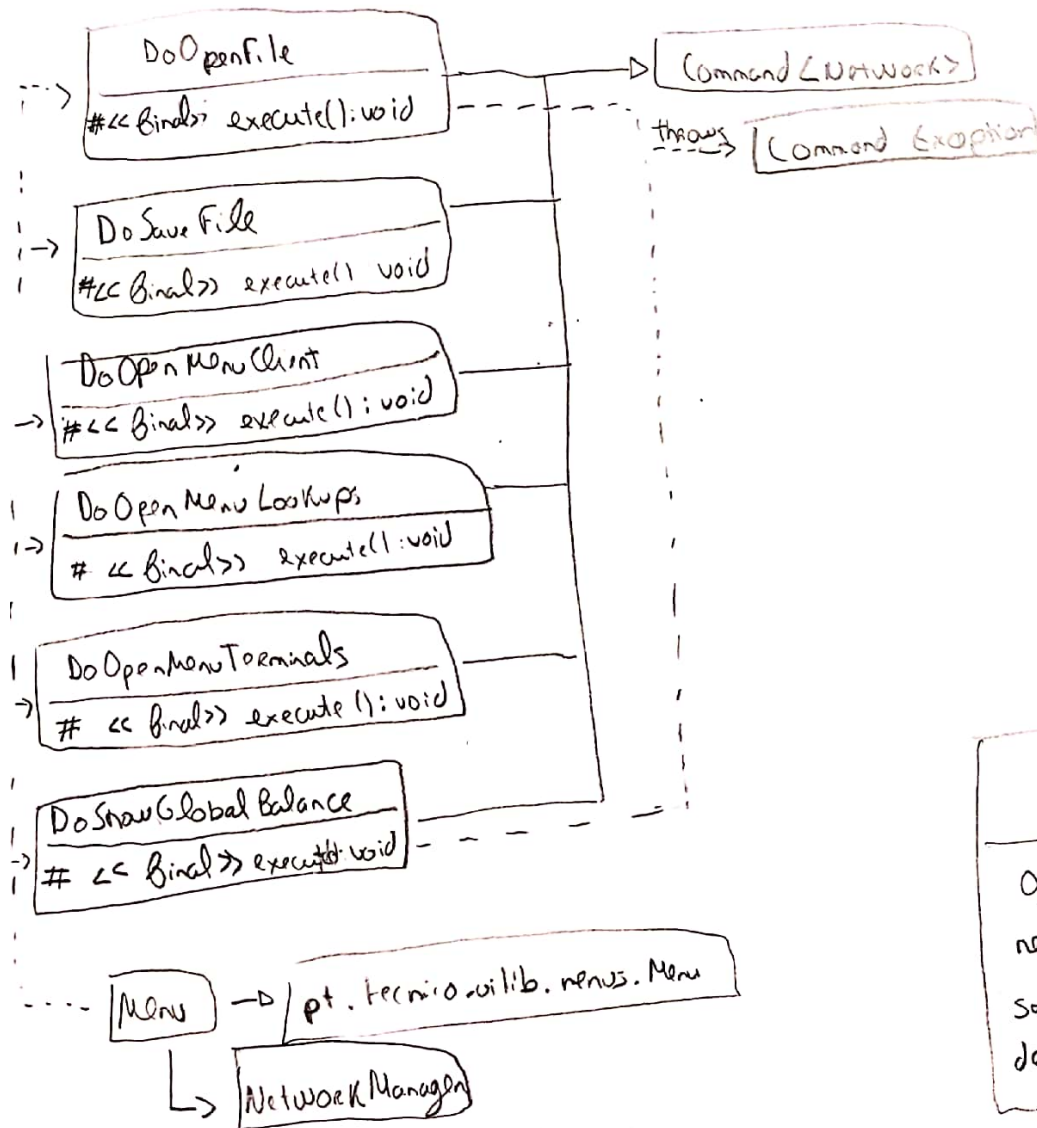 DoOpenFile
#<<final>> execute(): void
Command <Network>
throws
Command Exception
DoSaveFile
#<<final>> execute() void
DoOpenMenuClient
#<<final>> execute(): void
DoOpenMenuLookups
# <<final>> execute(): void
DoOpenMenuTerminals
# <<final>> execute(): void
DoShowGlobalBalance
# <<final>> execute(): void
Menu
pt.tecnico.uilib.menus.Menu
NetworkManager